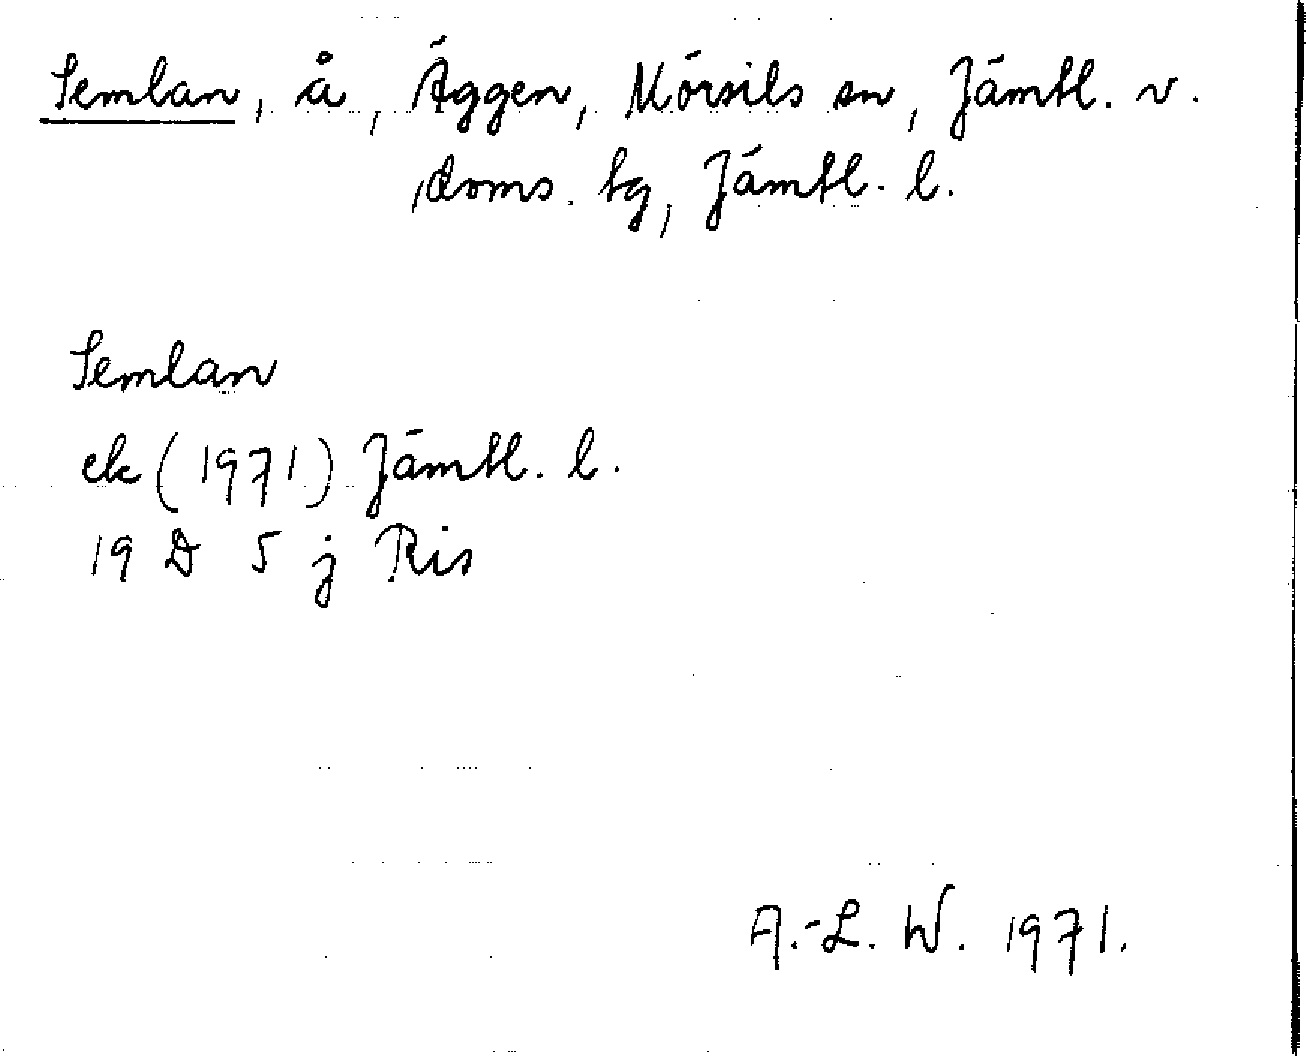 Semlan, å, Äggen, Mörsils sn, Jämtl. v.
doms. tg, Jämtl. l.
Semlan
ek (1971) Jämtl. l.
19 D 5 j Ris
A.-L. W. 1971.